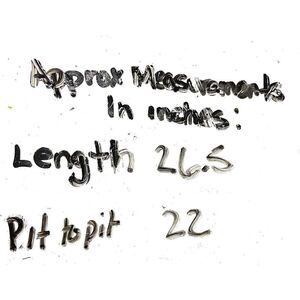 Approx Measurements
In inches:
Length 26.5
Pit to pit 22